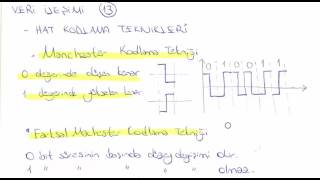 VERİ İLETİMİ (13)
- HAT KODLAMA TEKNİKLERİ
- Manchester Kodlama Tekniği
0 değerinde düşen kenar
1 değerinde yükselen kenar
0 1 0 0 1
* Farksal Manchester Kodlama Tekniği
0
0 bit süresinin başında düzey değişimi olur.
1 " " " " " olmaz.